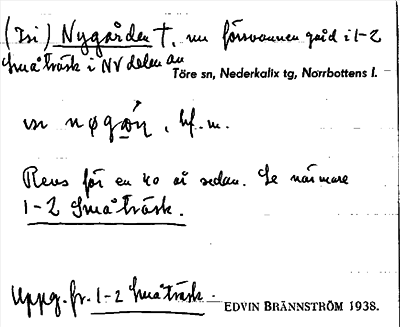 (Isi) Nygården †, nu försvunnen gård i 1-2
Småträsk i NV delen av
Töre sn, Nederkalix tg, Norrbottens l.
hf. m.
Revs för en 40 år sedan. Se närmare
1-2 Småträsk.
Uppg. fr. 1-2 Småträsk.
EDVIN BRÄNNSTRÖM 1938.